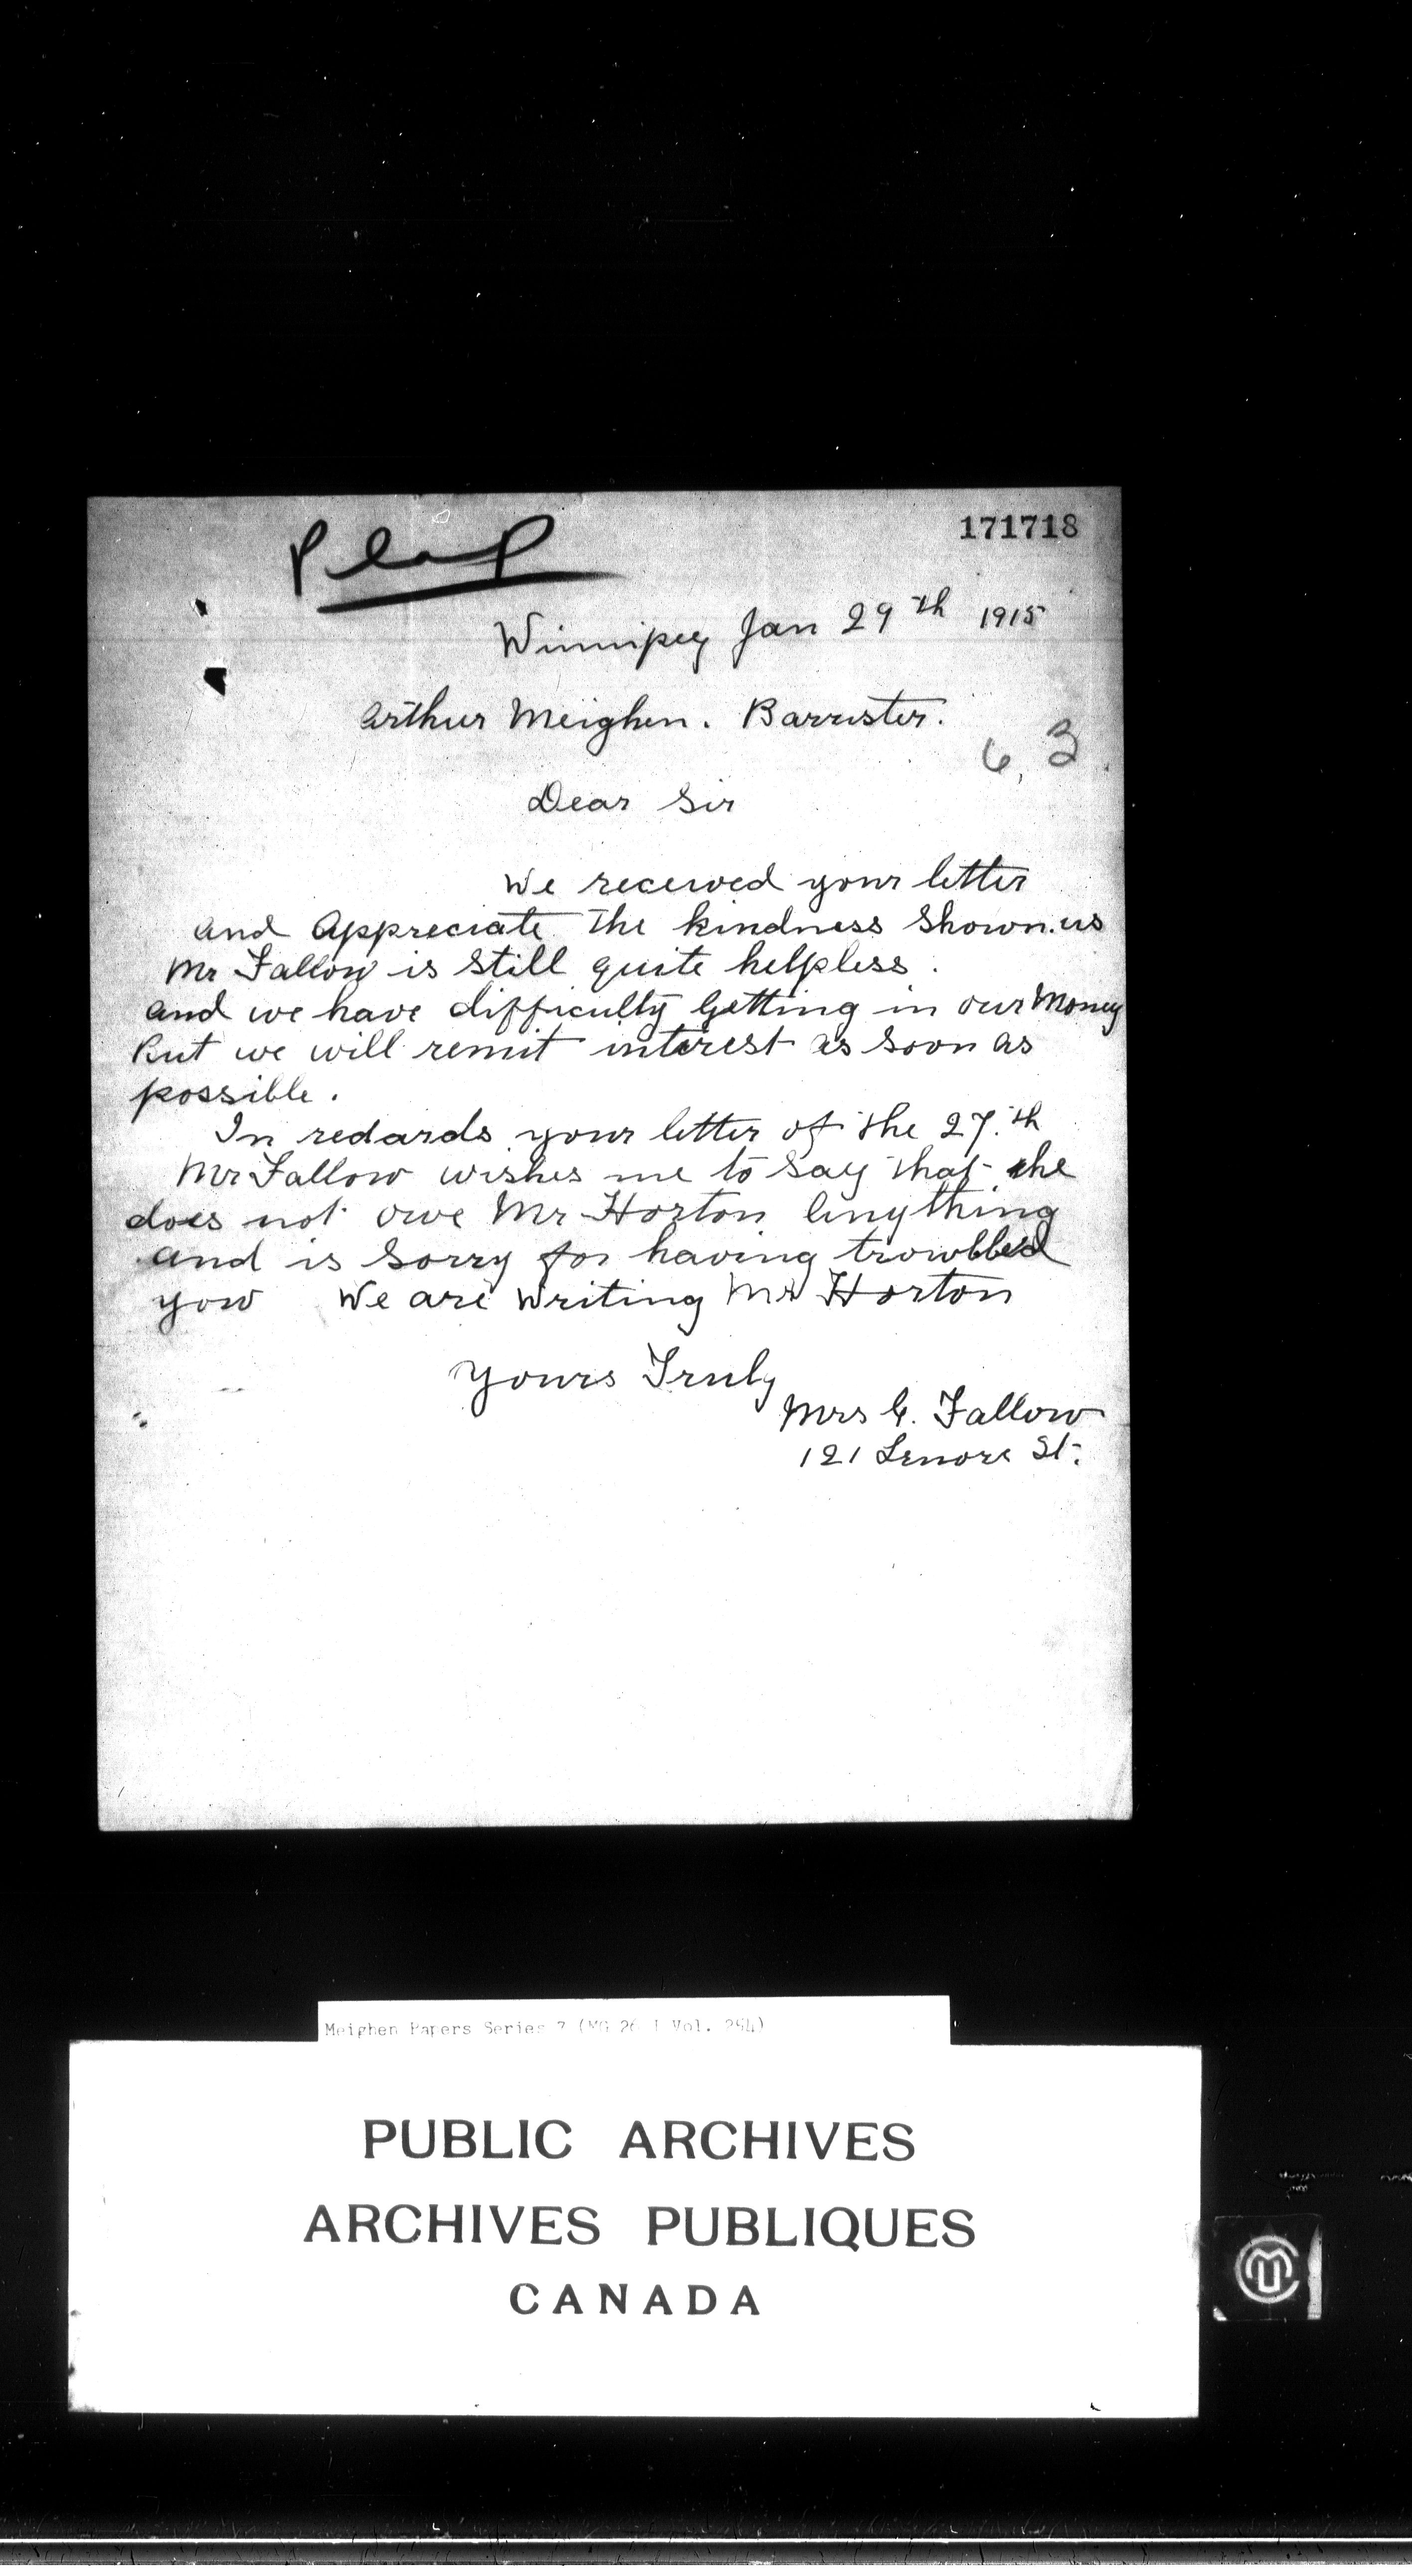 171718
P Lap
Winnipeg Jan 29th 1915
Arthur Meighen. Barrister.
6, 3.
Dear Sir
We received your letter
and Appreciate the kindness Shown us
Mr Fallow is Still quite helpless.
and we have difficulty Getting in our Money
But we will remit interest as Soon as
possible.
In redards your letter of the 27.th
Mr Fallow wishes me to Say that he
does not owe Mr Horton Anything
and is Sorry for having trowbled
yow We are Writing Mr Horton
Yours Truly
Mrs C. Fallow
121 Lenore St.
Meighen Papers Series 7 (MG 26 I Vol. 254)
PUBLIC ARCHIVES
ARCHIVES PUBLIQUES
CANADA